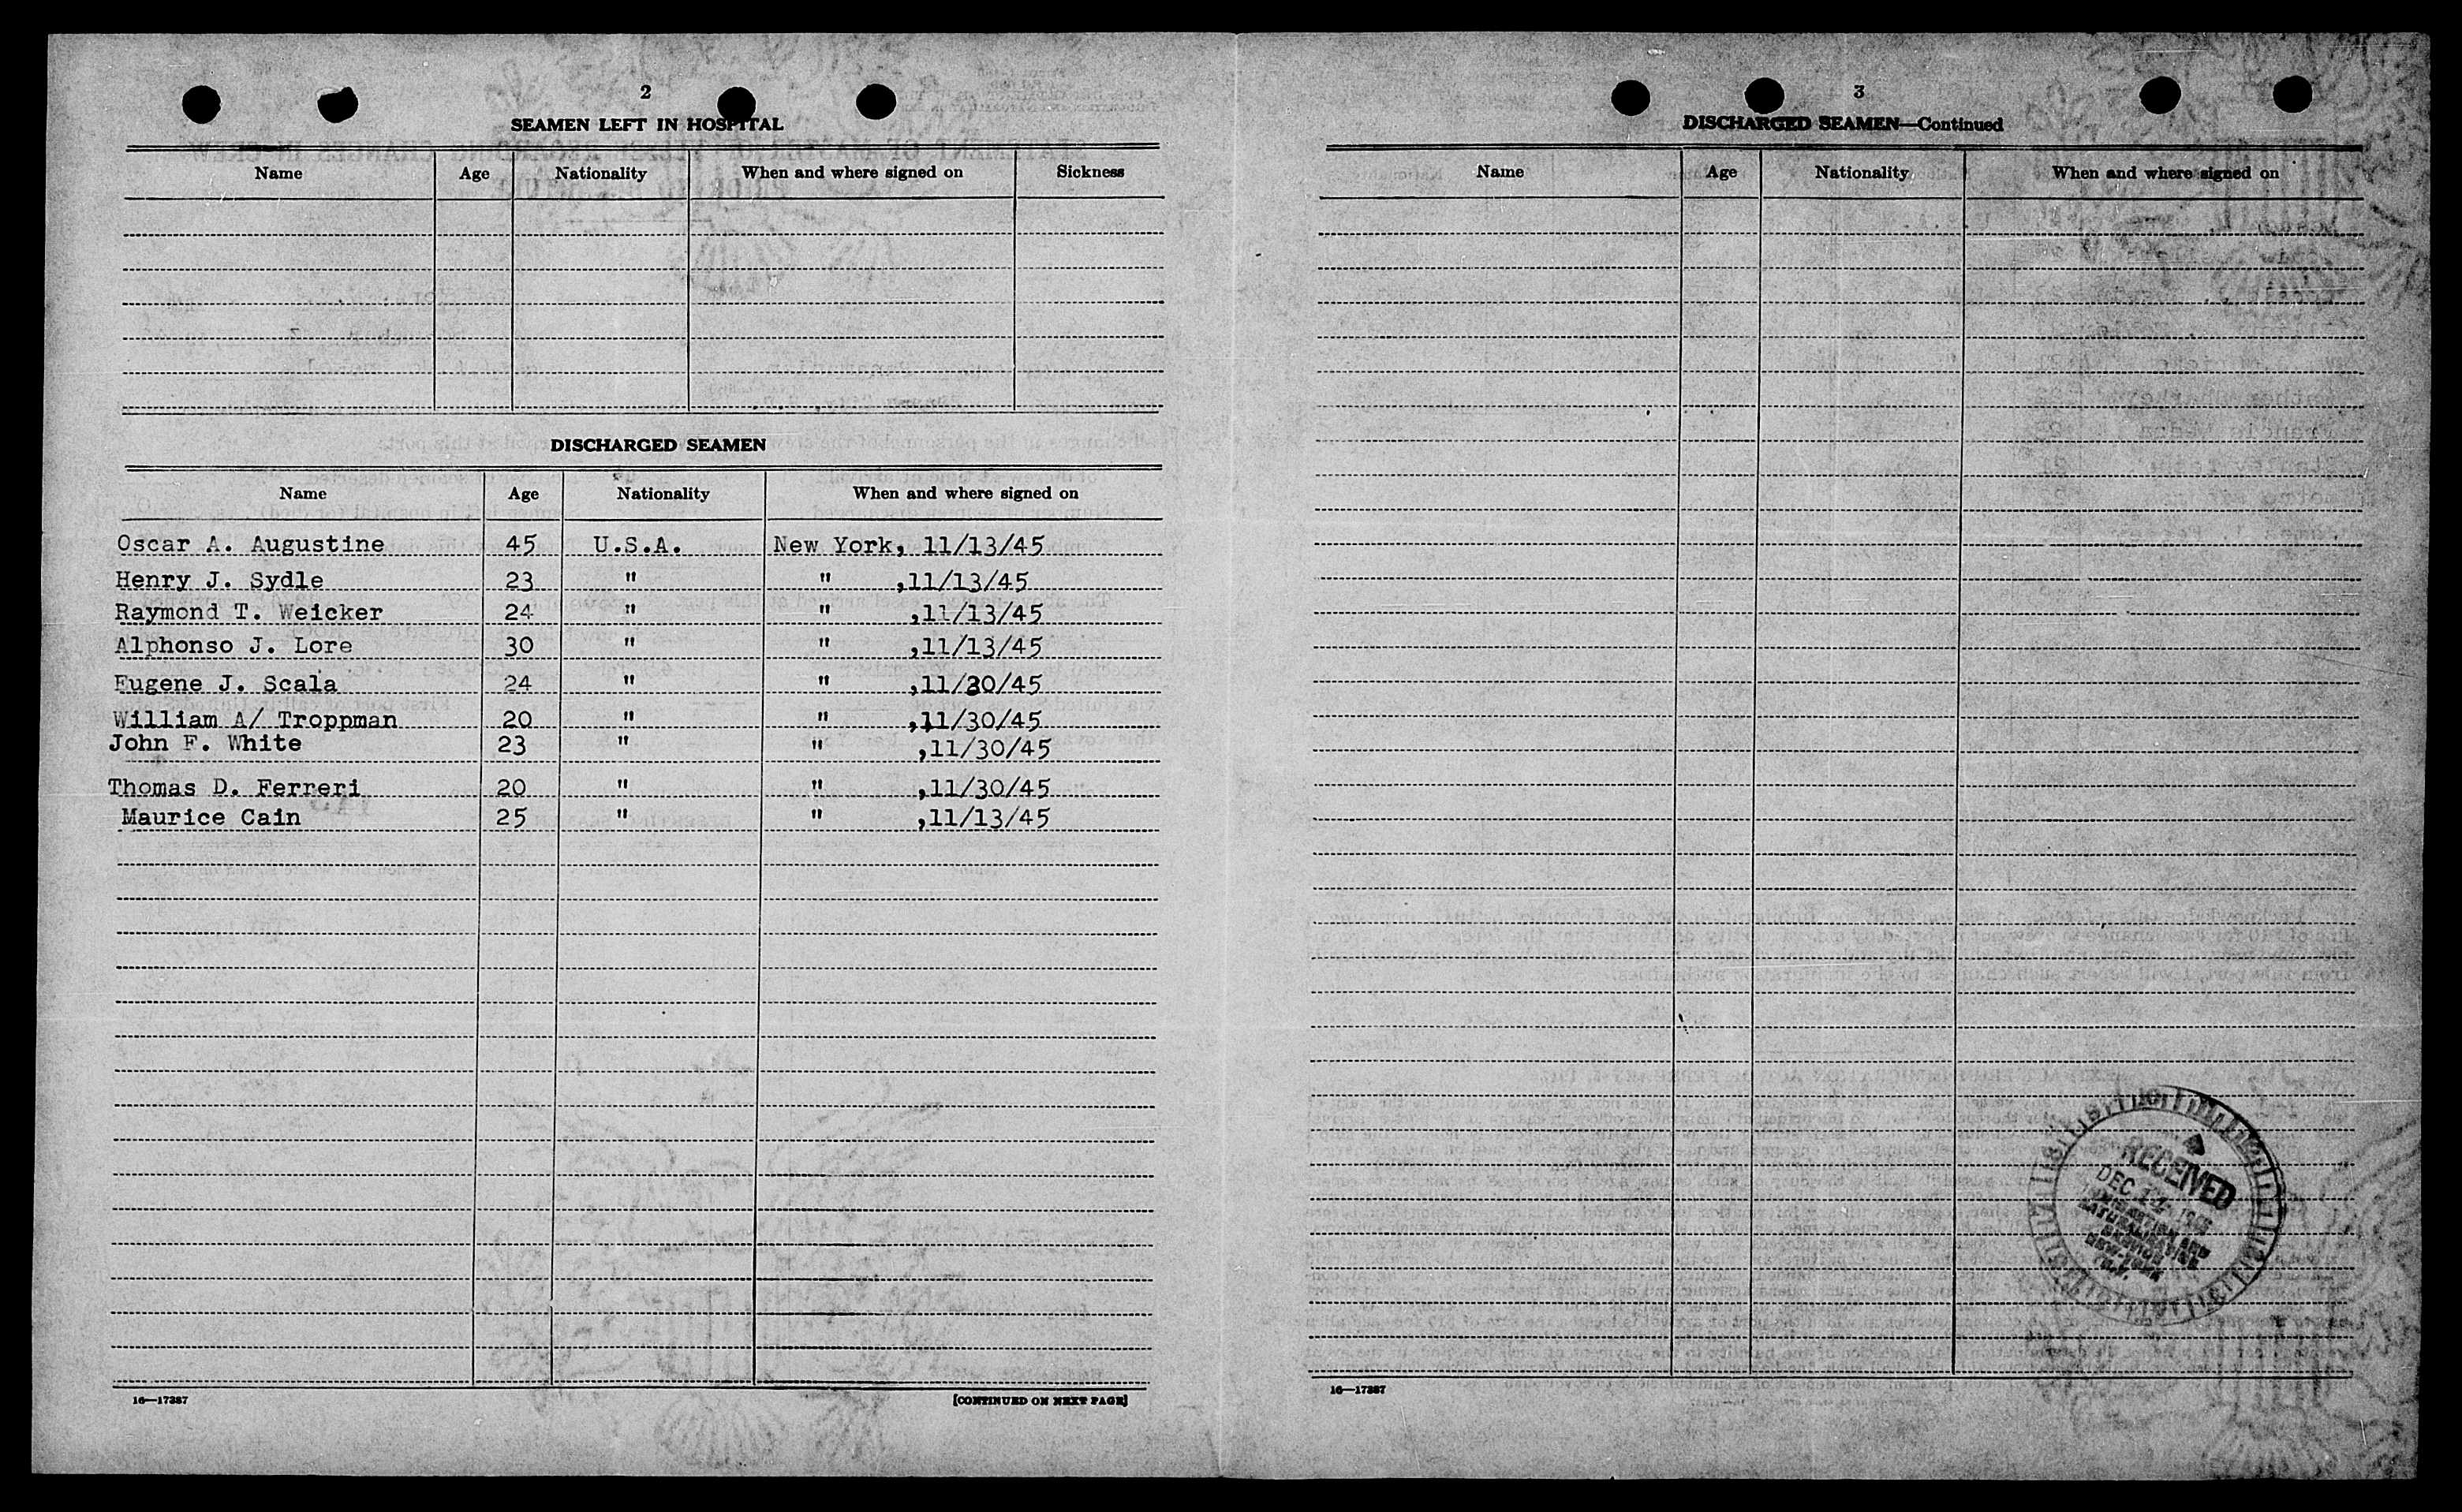 2
SEAMEN LEFT IN HOSPITAL
Name Age Nationality When and where signed on Sickness
DISCHARGED SEAMEN
Name Age Nationality When and where signed on
Oscar A. Augustine 45 U.S.A. New York, 11/13/45
Henry J. Sydle 23 " " ,11/13/45
Raymond T. Weicker 24 " " ,11/13/45
Alphonso J. Lore 30 " " ,11/13/45
Eugene J. Scala 24 " " ,11/30/45
William A/ Troppman 20 " " ,11/30/45
John F. White 23 " " ,11/30/45
Thomas D. Ferreri 20 " " ,11/30/45
Maurice Cain 25 " " ,11/13/45
16—17387
[CONTINUED ON NEXT PAGE]
3
DISCHARGED SEAMEN—Continued
Name Age Nationality When and where signed on
RECEIVED
DEC
IMMIGRATION AND
NATURALIZATION
SERVICE
NEW YORK
N.Y.
16—17387